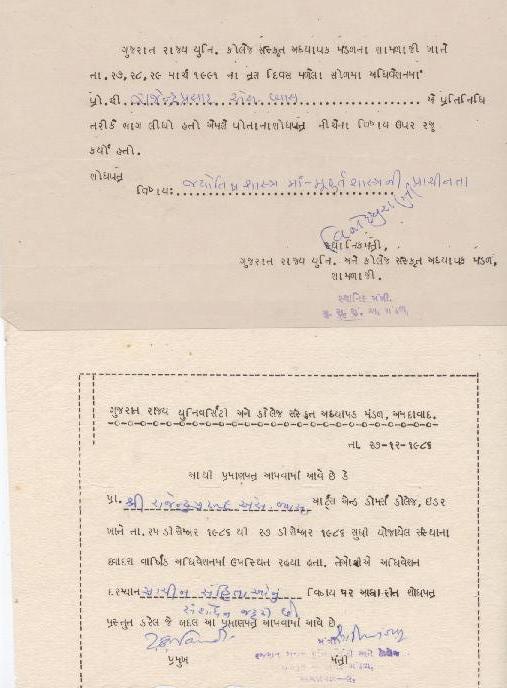 ગુજરાત રાજ્ય યુનિ. કોલેજ સંસ્કૃત અધ્યાપક મંડળના શામળાજી ખાતે
તા. ૨૭,૨૮,૨૯ માર્ચ ૧૯૯૧ ના ત્રણ દિવસ મળેલા સોળમા અધિવેશનમાં
પ્રો.શ્રી રાજેન્દ્રપ્રસાદ એસ. વ્યાસ એ પ્રતિનિધિ
તરીકે ભાગ લીધો હતો એમણે પોતાનાશોધપત્ર નીચેના વિષય ઉપર રજુ
કર્યો હતો.
શોધપત્ર
વિષય: જ્યોતિષશાસ્ત્ર માં-મૂહૂર્તશાસ્ત્રની પ્રાચીનતા
સ્થાનિકમંત્રી,
ગુજરાત રાજ્ય યુનિ. અને કોલેજ સંસ્કૃત અધ્યાપક મંડળ,
શામળાજી.
સ્થાનિક મંત્રી.
ગુ. યુ. સં. અ. મંડળ,
ગુજરાત રાજ્ય યુનિવર્સિટી અને કોલેજ સંસ્કૃત અધ્યાપક મંડળ, અમદાવાદ.
તા. ૨૭-૧૨-૧૯૮૬
આથી પ્રમાણપત્ર આપવામાં આવે છે કે
પ્રા. શ્રી રાજેન્દ્રપ્રસાદ એસ. વ્યાસ આર્ટ્સ એન્ડ કોમર્સ કોલેજ, ઇડર
ખાતે તા. ૨૫ ડીસેમ્બર ૧૯૮૬ થી ૨૭ ડીસેમ્બર ૧૯૮૬ સુધી યોજાયેલ સંસ્થાના
દ્વાદશ વાર્ષિક અધિવેશનમાં ઉપસ્થિત રહયા હતા. તેઓશ્રીએ અધિવેશન
દરમ્યાન પ્રાચીન સંહિતાઓનું વિષય પર આધારીત શોધપત્ર
સંશોધન જરૂરી છે
પ્રસ્તુત કરેલ જે બદલ આ પ્રમાણપત્ર આપવામાં આવે છે.
પ્રમુખ મંત્રી